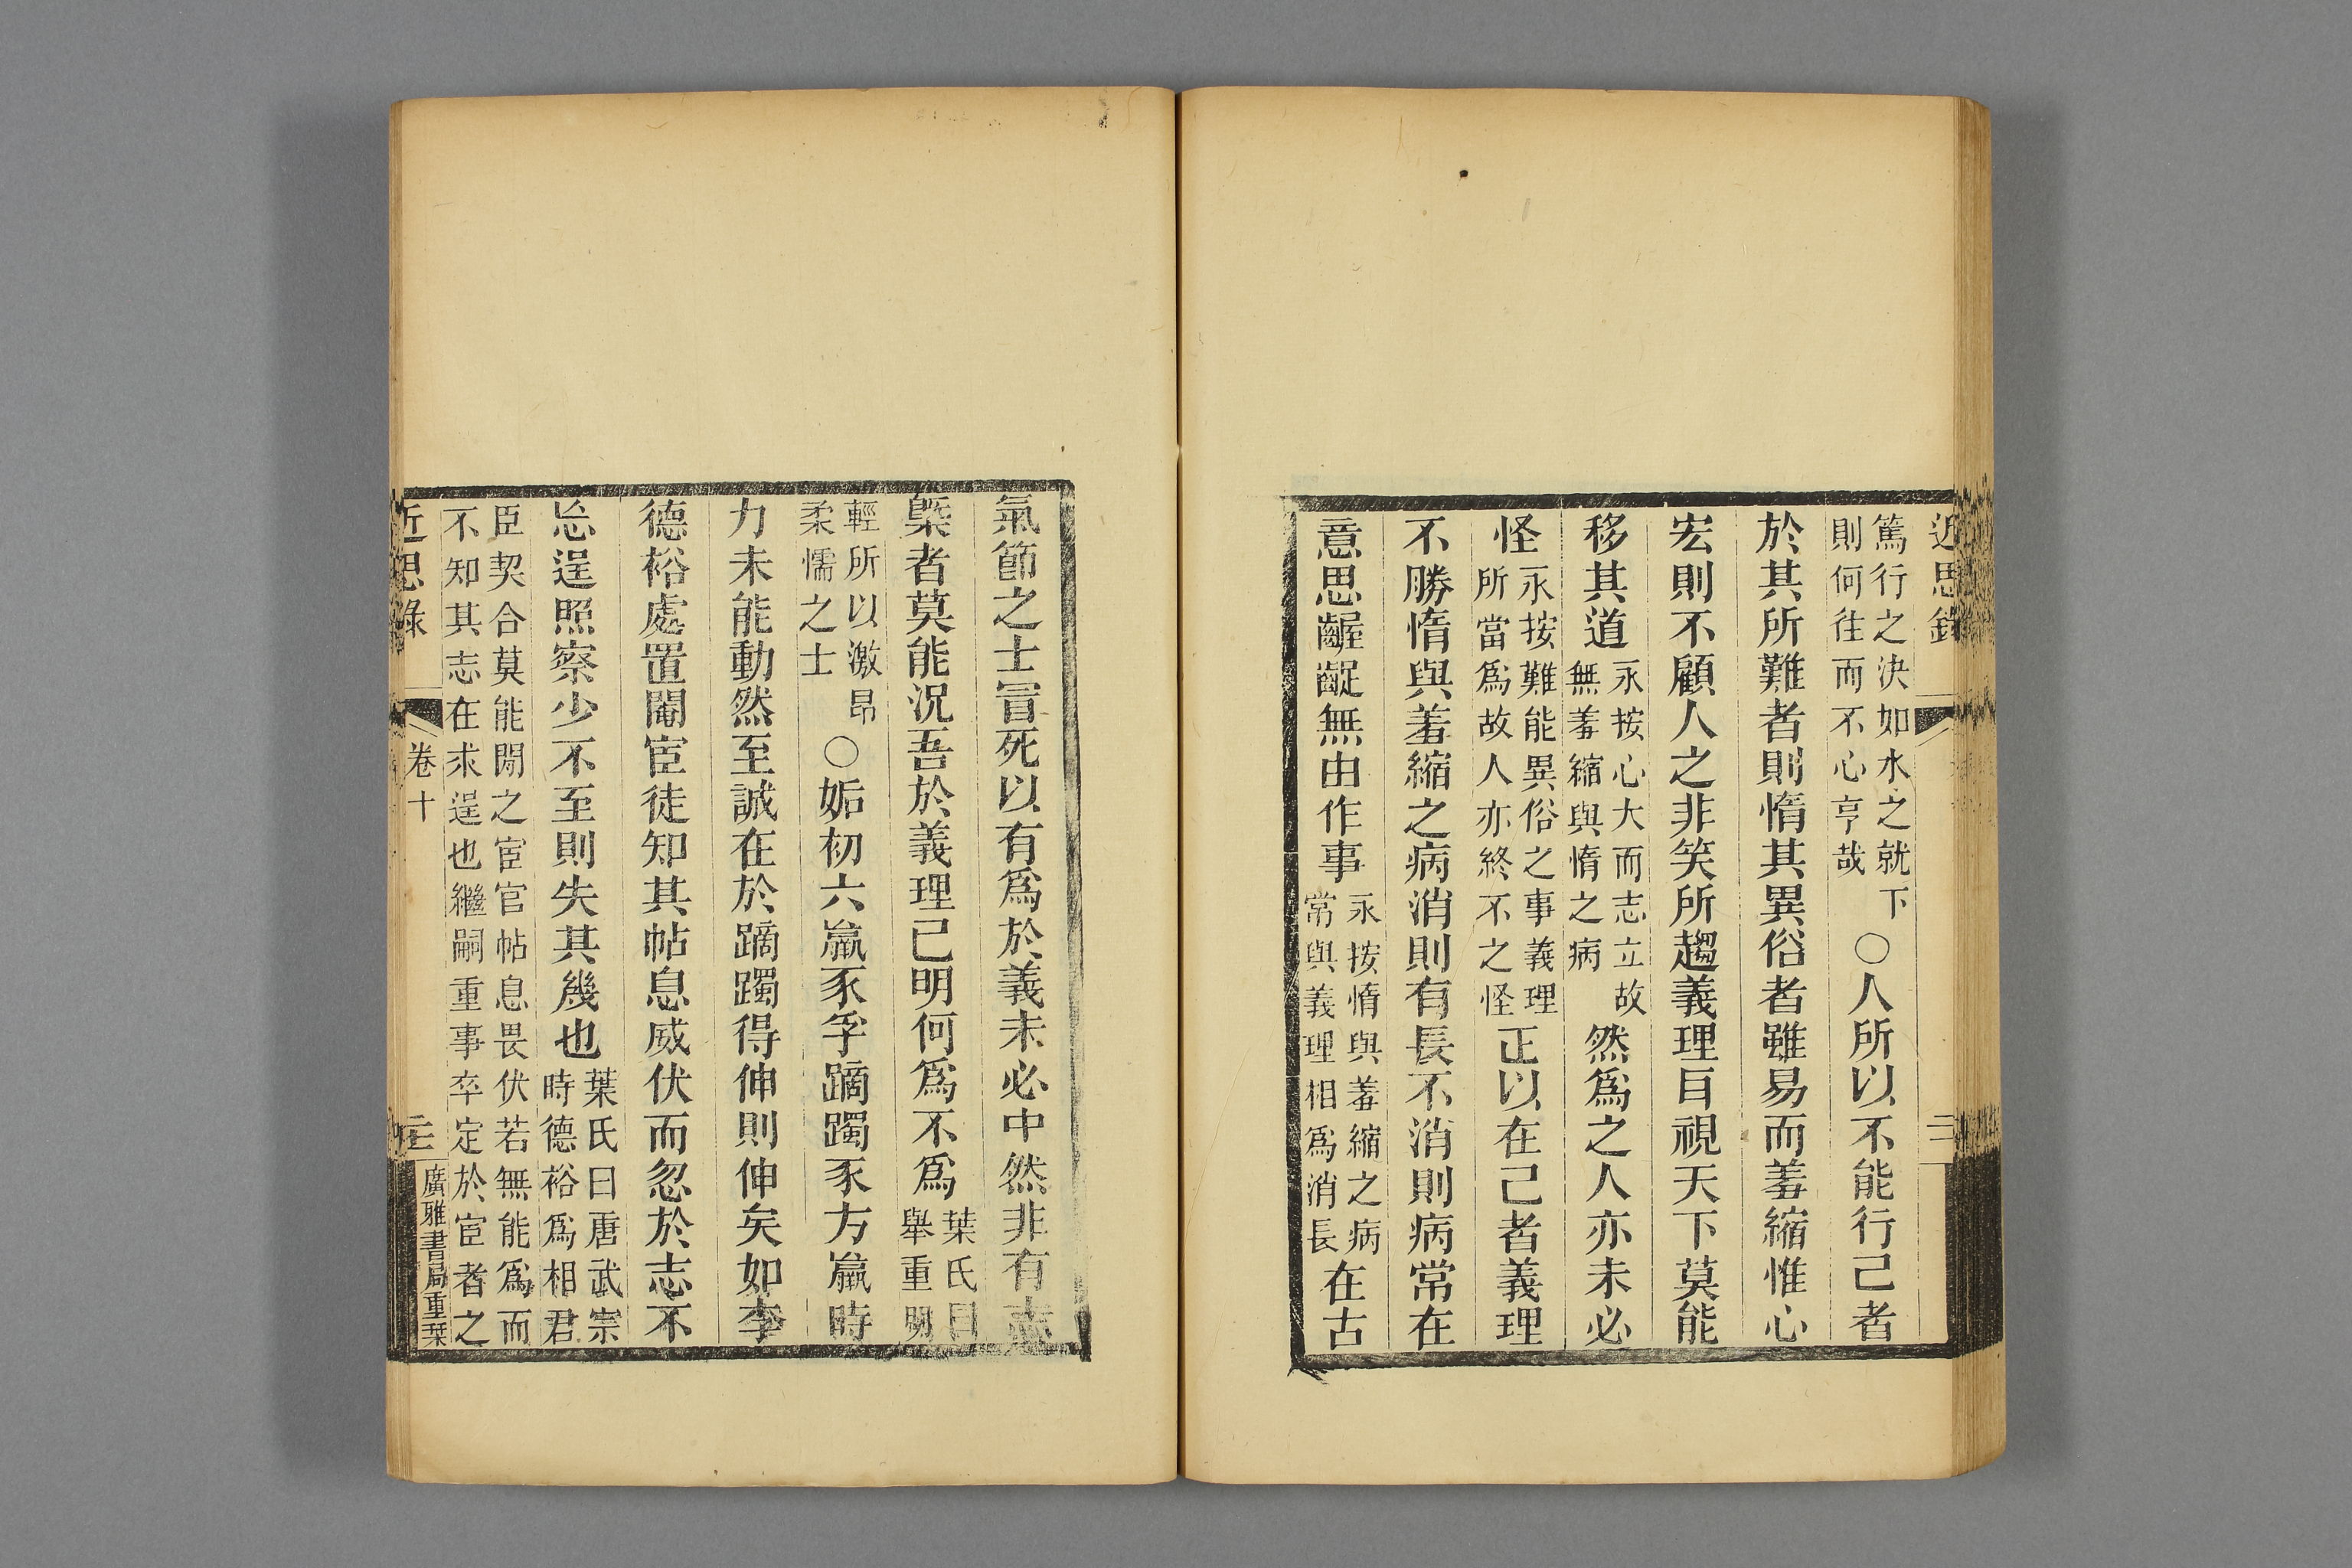 近思錄
篤行之決如水之就下
則何往而不心亨哉
○人所以不能行己者
於其所難者則惰其異俗者雖易而羞縮惟心
宏則不顧人之非笑所趨義理耳視天下莫能
移其道
永按心大而志立故
無羞縮與惰之病
然爲之人亦未必
怪
永按難能異俗之事義理
所當爲故人亦終不之怪
正以在己者義理
不勝惰與羞縮之病消則有長不消則病常在
意思齷齪無由作事
永按惰與羞縮之病
常與義理相爲消長
在古
氣節之士冒死以有爲於義未必中然非有志
槩者莫能況吾於義理已明何爲不爲
葉氏曰
舉重明
輕所以激昂
柔懦之士
○姤初六羸豕孚蹢躅豕方羸時
力未能動然至誠在於蹢躅得伸則伸矣如李
德裕處置閹宦徒知其帖息威伏而忽於志不
忘逞照察少不至則失其幾也
葉氏曰唐武宗
時德裕爲相君
臣契合莫能閒之宦官帖息畏伏若無能爲而
不知其志在求逞也繼嗣重事卒定於宦者之
近思錄
卷十
廣雅書局重栞